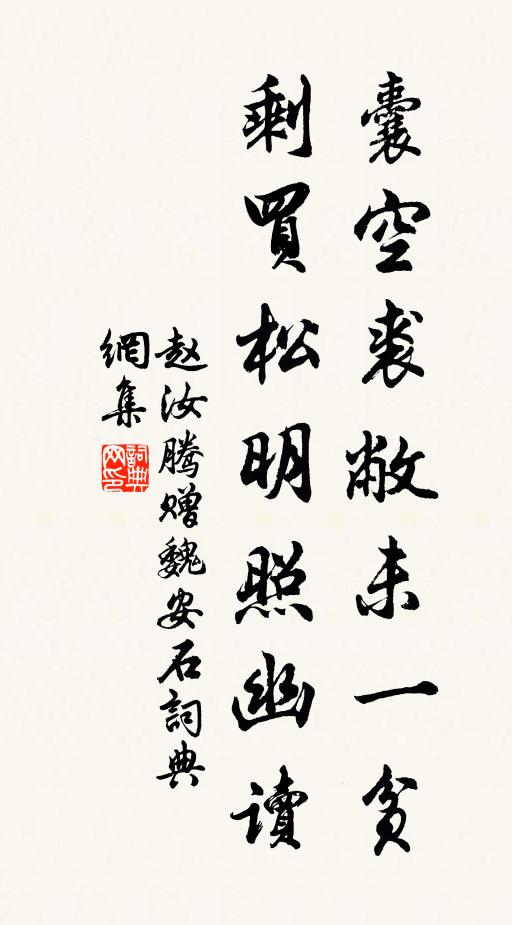 囊空裘敝未一贫
剩買松明照幽读
赵汝腾赠魏安石詞典
網集
詞典
网印